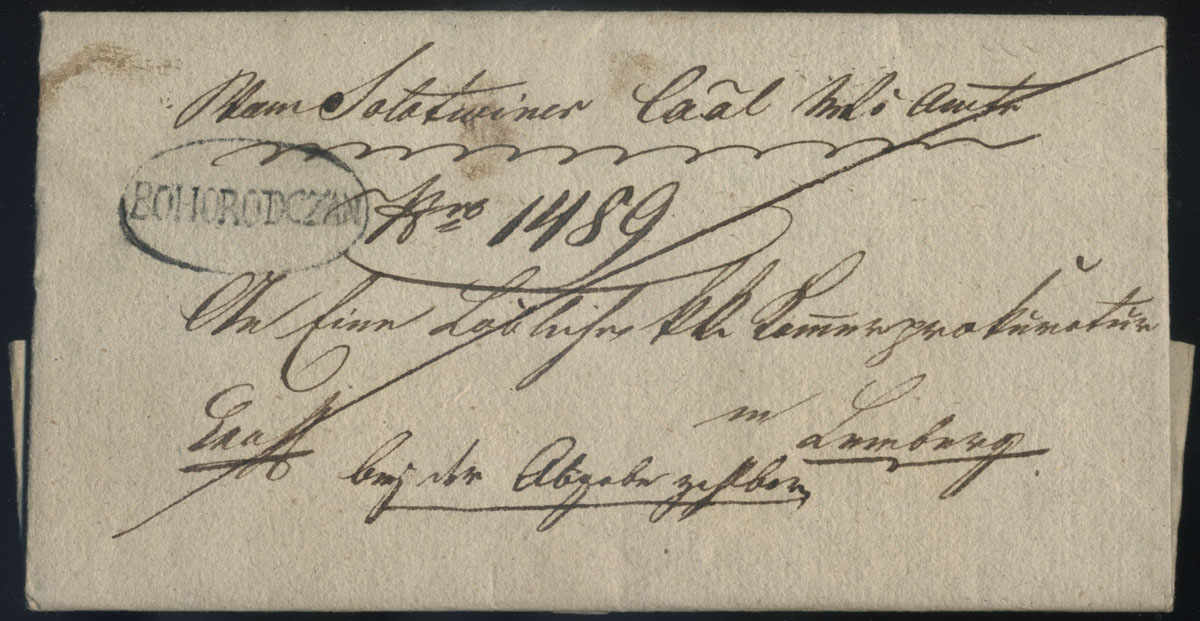 Vom Solotwiner Caãl Wts Amte
BOHORODCZAN
Nro 1489
An Eine Löbliche k k Kam̅erprokuratur
in Lemberg
bey der Abgabe zahlbar